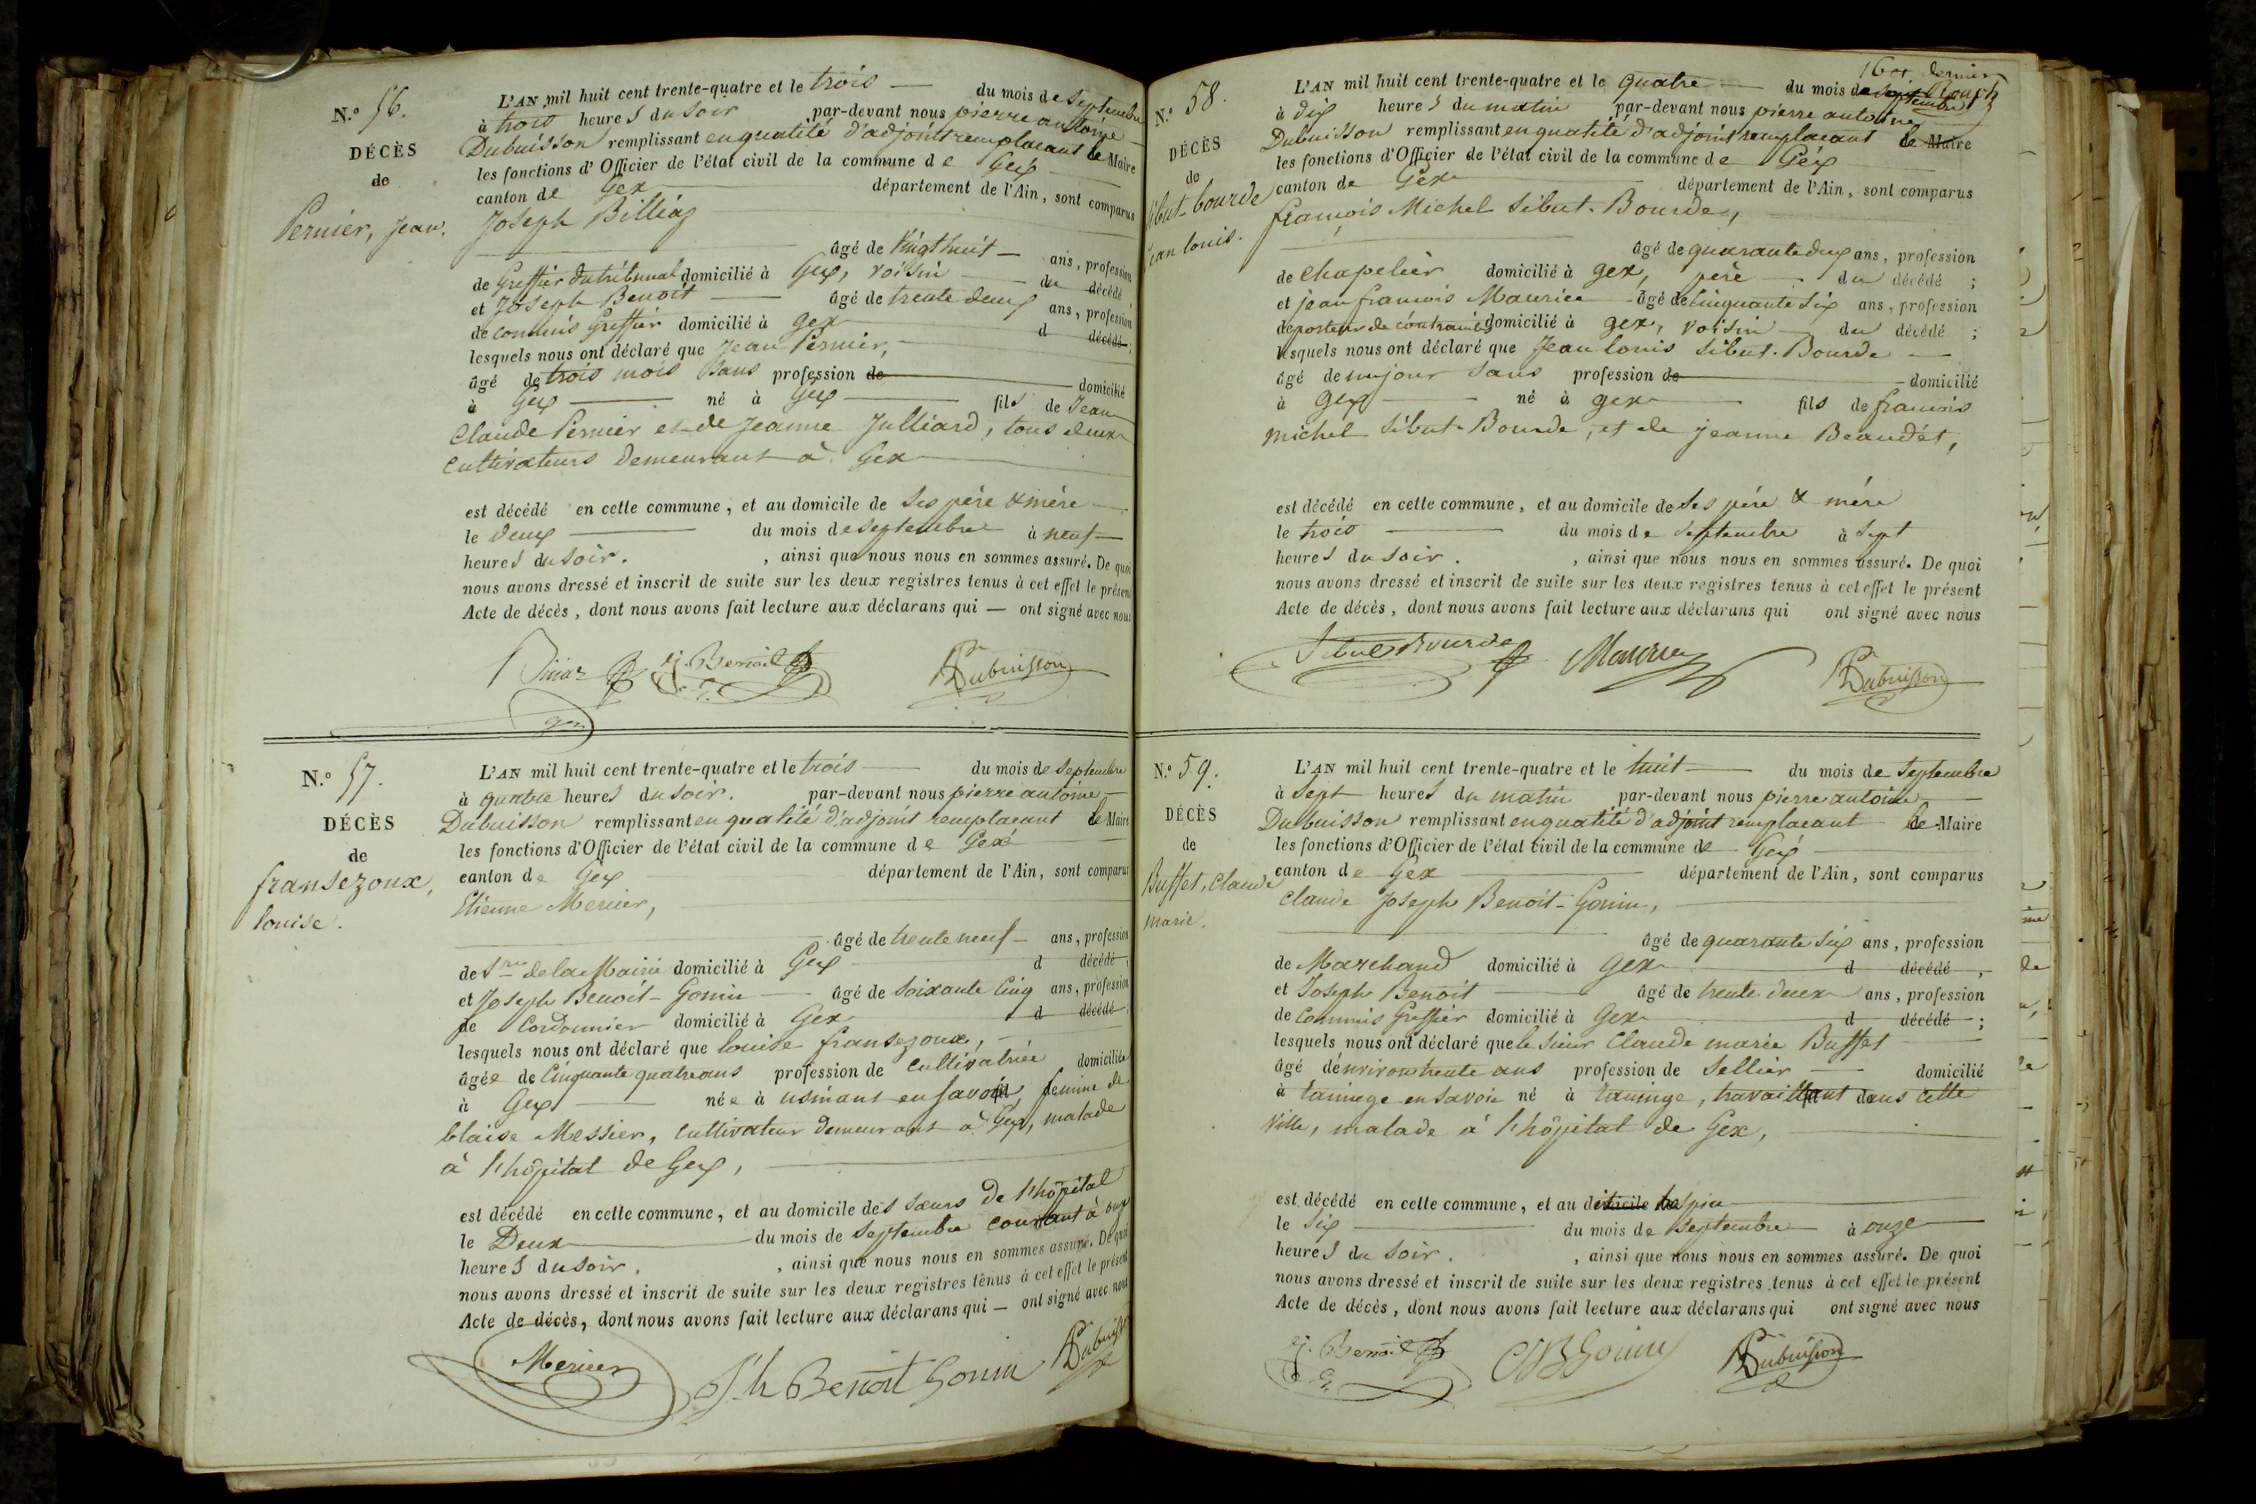 N.º 56.
DÉCÈS
de
Pernier, Jean.
L'AN mil huit cent trente-quatre et le trois du mois de Septembre
à trois heures du soir par-devant nous pierre antoine
Dubuisson remplissant en qualité d'adjoint remplacant le Maire
les fonctions d'Officier de l'état civil de la commune de Gex
canton de Gex département de l'Ain, sont comparus
Joseph Billiaz
âgé de Vingt huit ans, profession
de Greffier du tribunal domicilié à Gex, voisin du décédé
et Joseph Benoit âgé de trente deux ans, profession
de commis Greffier domicilié à Gex d décédé
lesquels nous ont déclaré que Jean Pernier,
âgé de trois mois Sans profession de domicilié
à Gex né à Gex fils de Jean
Claude Pernier et de Jeanne Julliard, tous deux
cultivateurs demeurant à Gex
est décédé en cette commune, et au domicile de Ses père & mère
le deux du mois de septembre à neuf
heures du soir. , ainsi que nous nous en sommes assuré. De quoi
nous avons dressé et inscrit de suite sur les deux registres tenus à cet effet le présent
Acte de décès, dont nous avons fait lecture aux déclarans qui — ont signé avec nous
j. Benoit Dubuisson
N.º 57.
DÉCÈS
de
fransezoux,
louise.
L'AN mil huit cent trente-quatre et le trois du mois de Septembre
à quatre heures du soir. par-devant nous pierre antoine
Dubuisson remplissant en qualité d'adjoint remplacant le Maire
les fonctions d'Officier de l'état civil de la commune de Gex
canton de Gex département de l'Ain, sont comparus
Etienne Mercier,
âgé de trente neuf ans, profession
de S.re de la Mairie domicilié à Gex d décédé
et Joseph Benoit-Gonin âgé de Soixante Cinq ans, profession
de Cordonnier domicilié à Gex d décédé
lesquels nous ont déclaré que louise fransezoux,
âgée de Cinquante quatre ans profession de cultivatrice domiciliée
à Gex née à usinant en Savoie, femme de
blaise Messier, cultivateur demeurant à Gex, malade
à l'hôpital de Gex,
est décédé en cette commune, et au domicile des sœurs De l'hôpital
le Deux du mois de Septembre courant à onze
heures du soir. , ainsi que nous nous en sommes assuré. De quoi
nous avons dressé et inscrit de suite sur les deux registres tenus à cet effet le présent
Acte de décès, dont nous avons fait lecture aux déclarans qui — ont signé avec nous
Mercier Jh Benoit Gonin Dubuisson
N.º 58.
DÉCÈS
de
Sibut-bourde
Jean louis.
dernier
L'AN mil huit cent trente-quatre et le quatre du mois de septembre
à dix heures du matin par-devant nous pierre antoine
Dubuisson remplissant en qualité d'adjoint remplacant le Maire
les fonctions d'Officier de l'état civil de la commune de Gex
canton de Gex département de l'Ain, sont comparus
françois Michel Sibut-Bourde,
âgé de quarante deux ans, profession
de Chapelier domicilié à gex, père du décédé ;
et jean francois Maurice âgé de Cinquante Six ans, profession
de porteur de contraintes domicilié à gex, voisin du décédé ;
lesquels nous ont déclaré que Jean louis Sibut-Bourde
âgé de un jour sans profession de domicilié
à Gex né à gex fils de francois
michel Sibut-Bourde, et de jeanne Beaudet,
est décédé en cette commune, et au domicile de Ses père & mère
le trois du mois de Septembre à Sept
heures du soir. , ainsi que nous nous en sommes assuré. De quoi
nous avons dressé et inscrit de suite sur les deux registres tenus à cet effet le présent
Acte de décès, dont nous avons fait lecture aux déclarans qui ont signé avec nous
Sibut Bourde Maurice Dubuisson
N.º 59.
DÉCÈS
de
Buffet, Claude
marie.
L'AN mil huit cent trente-quatre et le huit du mois de Septembre
à Sept heures du matin par-devant nous pierre antoine
Dubuisson remplissant en qualité d'adjoint remplacant le Maire
les fonctions d'Officier de l'état civil de la commune de Gex
canton de Gex département de l'Ain, sont comparus
Claude Joseph Benoit-Gonin,
âgé de quarante Six ans, profession
de Marchand domicilié à Gex d décédé ,
et Joseph Benoit âgé de trente deux ans, profession
de Commis Greffier domicilié à Gex d décédé ;
lesquels nous ont déclaré que le Sieur Claude marie Buffet
âgé d'environ trente ans profession de Sellier domicilié
à taninge en Savoie né à taninge, travaillant dans cette
Ville, malade à l'hôpital de Gex,
est décédé en cette commune, et au domicile hospice
le Six du mois de Septembre à onze
heures du Soir. , ainsi que nous nous en sommes assuré. De quoi
nous avons dressé et inscrit de suite sur les deux registres tenus à cet effet le présent
Acte de décès, dont nous avons fait lecture aux déclarans qui ont signé avec nous
j. Benoit CJBGonin Dubuisson